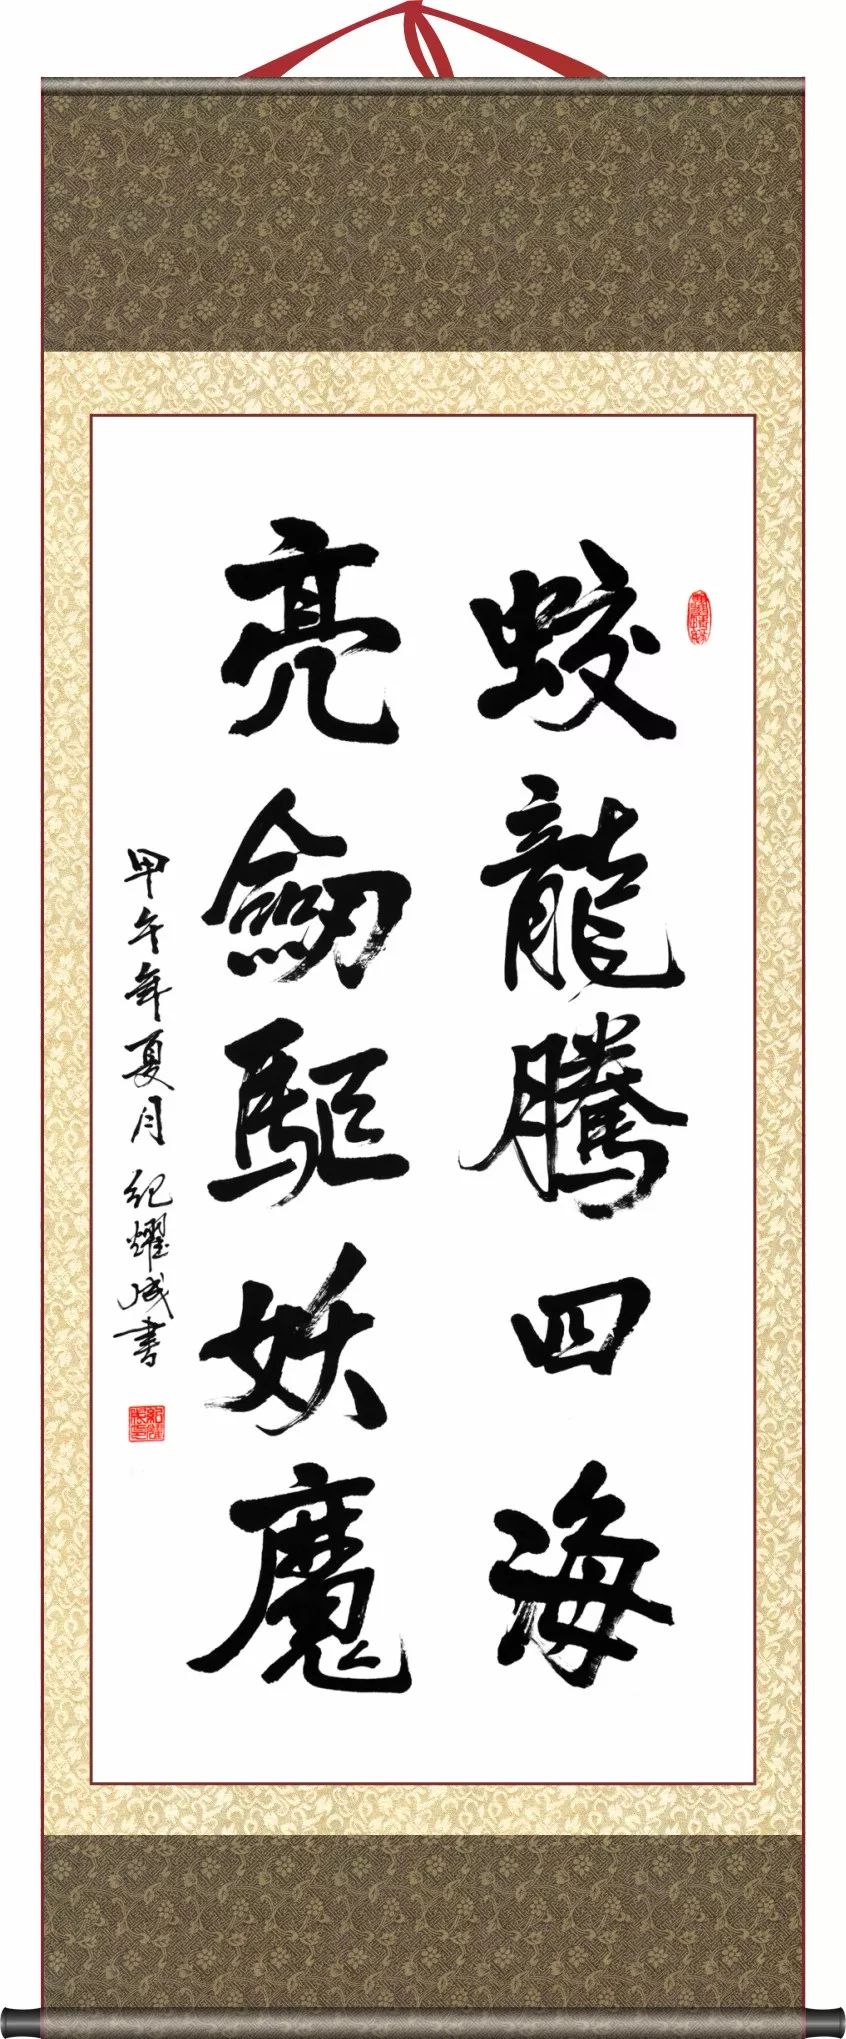 蛟龍騰四海
亮劒驅妖魔
甲午年夏月紀耀成書